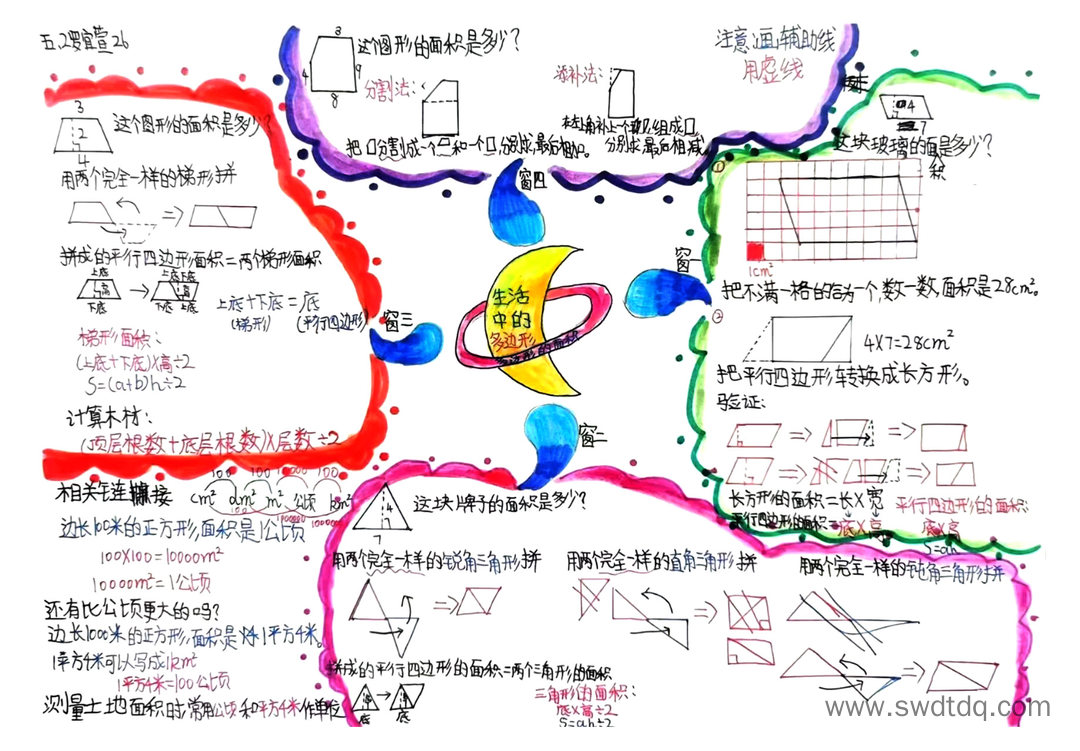 五.2罗宜萱26
3
4
9
8
这个图形的面积是多少?
分割法:
添补法:
注意:画辅助线
用虚线
分别求,最后相加。
分别求,最后相减。
窗四
3
2
4
这个图形的面积是多少?
用两个完全一样的梯形拼
拼成的平行四边形面积=两个梯形面积
上底
高
下底
上底下底
高
下底 上底
上底+下底=底
(梯形) (平行四边形)
梯形面积:
(上底+下底)×高÷2
S=(a+b)h÷2
计算木材:
(顶层根数+底层根数)×层数÷2
窗三
生活
中的
多边形
窗一
4
7
这块玻璃的面积是多少?
①
1cm²
把不满一格的合为一个,数一数,面积是28cm²。
②
4×7=28cm²
把平行四边形转换成长方形。
验证:
长方形的面积=长×宽
平行四边形的面积=底×高
平行四边形的面积:
底×高
S=ah
窗二
4
7
这块牌子的面积是多少?
用两个完全一样的锐角三角形拼
用两个完全一样的直角三角形拼
用两个完全一样的钝角三角形拼
拼成的平行四边形的面积=两个三角形的面积
高
底
高
底
三角形的面积:
底×高÷2
S=ah÷2
相关链接
100 100 10000 100
cm² dm² m² 公顷 km²
边长100米的正方形,面积是1公顷
100×100=10000m²
10000m²=1公顷
还有比公顷更大的吗?
边长1000米的正方形,面积是1平方千米。
1平方千米可以写成1km²
1平方千米=100公顷
测量土地面积时,常用公顷和平方千米作单位
www.swdtdq.com